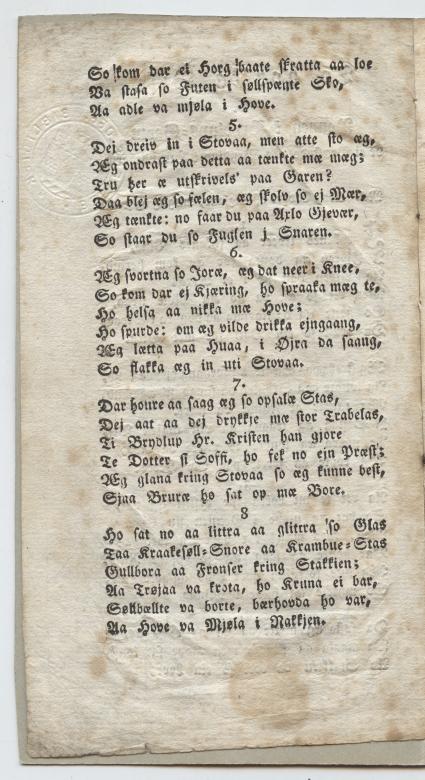 So kom dar ei Horg baate skratta aa loe
Va stasa so Futen i søllspænte Sko,
Aa adle va mjøla i Hove.
5.
Dej dreiv in i Stovaa, men atte sto æg,
Æg ondrast paa detta aa tænkte mæ mæg;
Tru her æ utskrivels' paa Garen?
Daa blej æg so fælen, æg skolv so ej Mær,
Æg tænkte: no faar du paa Axlo Gjevær,
So staar du so Fuglen j Snaren.
6.
Æg svortna so Joræ, æg dat neer i Knee,
So kom dar ej Kjæring, ho spraaka mæg te,
Ho helsa aa nikka mæ Hove;
Ho spurde: om æg vilde drikka ejngaang,
Æg lætta paa Huaa, i Øjra da saang,
So flakka æg in uti Stovaa.
7.
Dar houre aa saag æg so opsalæ Stas,
Dej aat aa dej drykkje mæ stor Trabelas,
Ti Brydlup Hr. Kristen han gjore
Te Dotter si Soffi, ho fek no ejn Præst;
Æg glana kring Stovaa so æg kunne best,
Sjaa Bruræ ho sat op mæ Bore.
8
Ho sat no aa littra aa glittra so Glas
Taa Kraakesøll-Snore aa Krambue-Stas
Gullbora aa Fronser kring Stakkien;
Aa Trøjaa va krota, ho Kruna ei bar,
Søllbællte va borte, bærhovda ho var,
Aa Hove va Mjøla i Nakkjen.